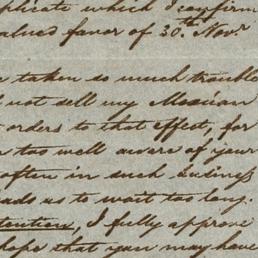 plicate which I confirm
valued favor of 30th Novr
taken so much trouble
not sell my Mexican
orders to that effect, for
too well aware of your
often in such business
leads us to wait too long.
tention, I fully approve
hope that you may have